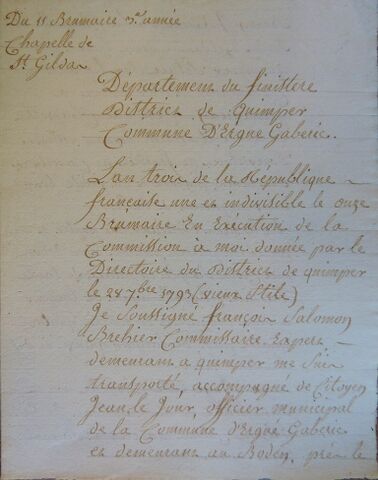 Du 11 Brumaire 3e année
Chapelle de
St Gildas
Département du finistere
District de quimper
Commune D'Ergue Gaberic.
L'an trois de la République
francaise une et indivisible le onze
Brumaire En Exécution de la
Commission à moi donnée par le
Directoire du District de quimper
le 28 7bre 1793 (vieux Stile)
Je Soussigné françois Salomon
Brehier Commissaire Expert
demeurant a quimper me suis
transporté, accompagné de Citoyen
Jean le Jour, officier municipal
de la Commune d'Ergué Gaberic
et demeurant au Boden, près le